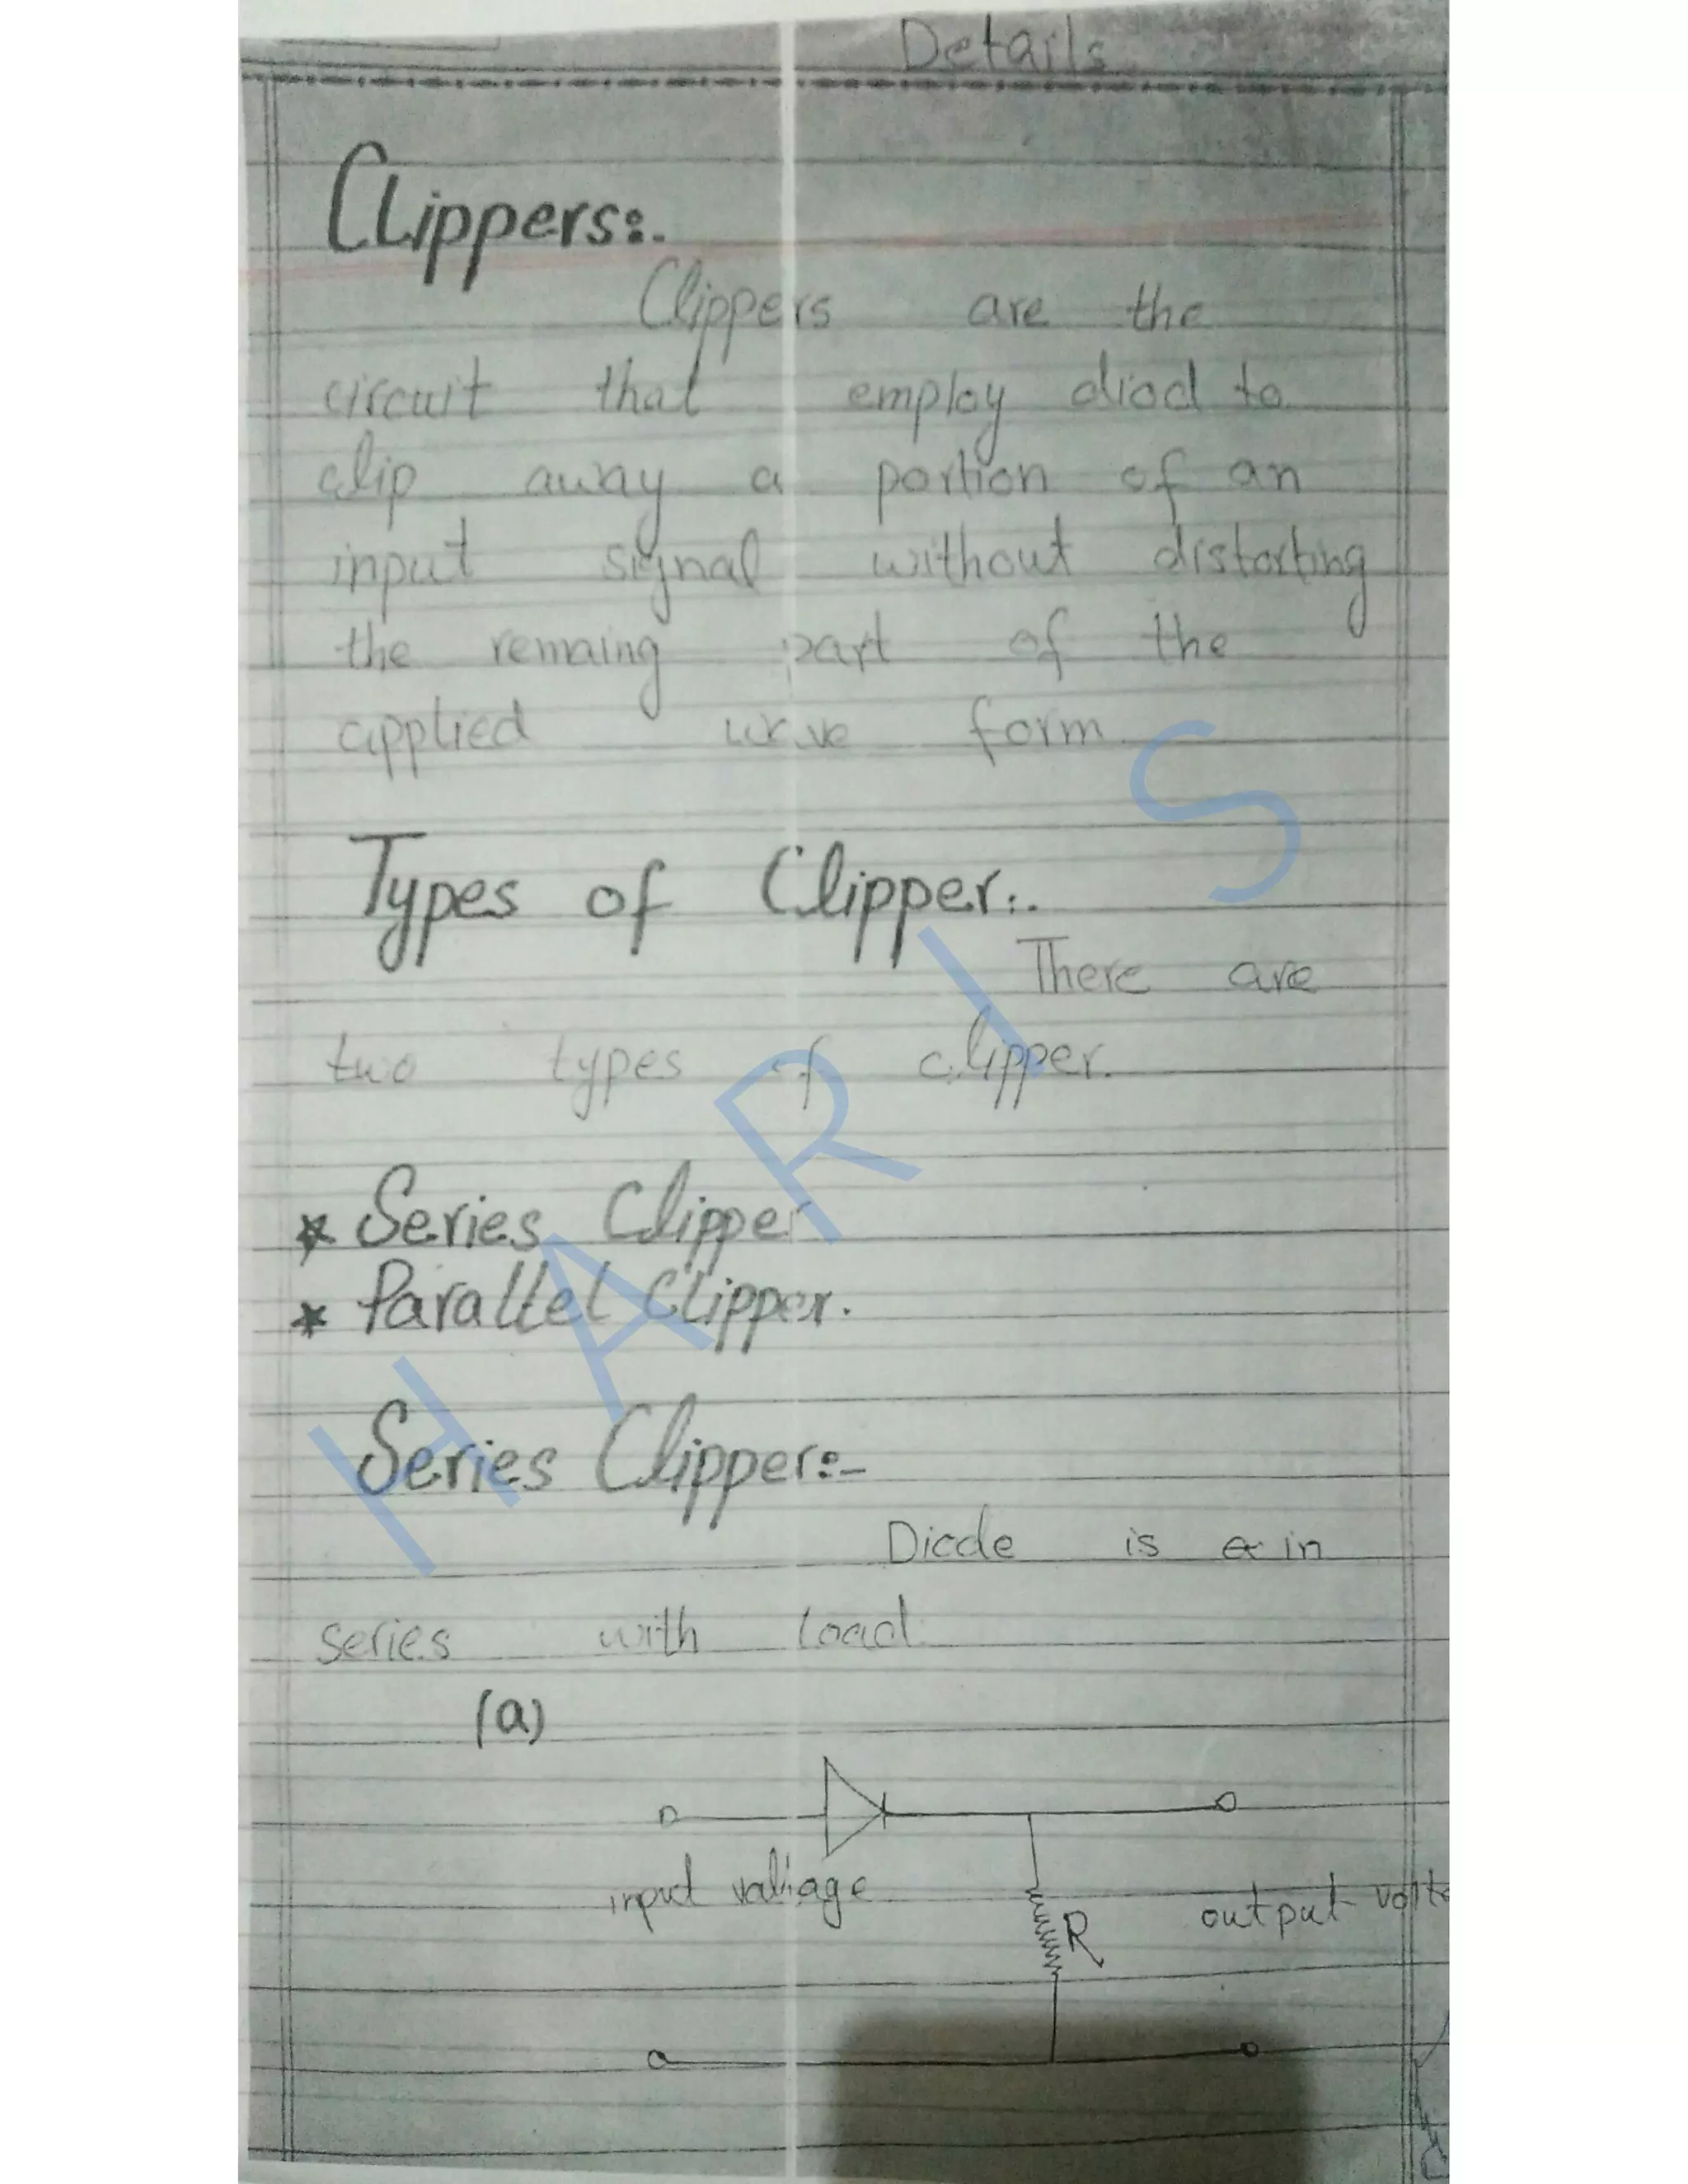 Details
Clippers:.
Clippers are the
circuit that employ diod to
clip away a portion of an
input signal without distorting
the remaing part of the
applied wave form
Types of Clipper:.
There are
two types of clipper.
* Series Clipper
* Parallel Clipper.
Series Clipper:-
Diode is in
series with load
(a)
input valtage
R
output volta
HARIS